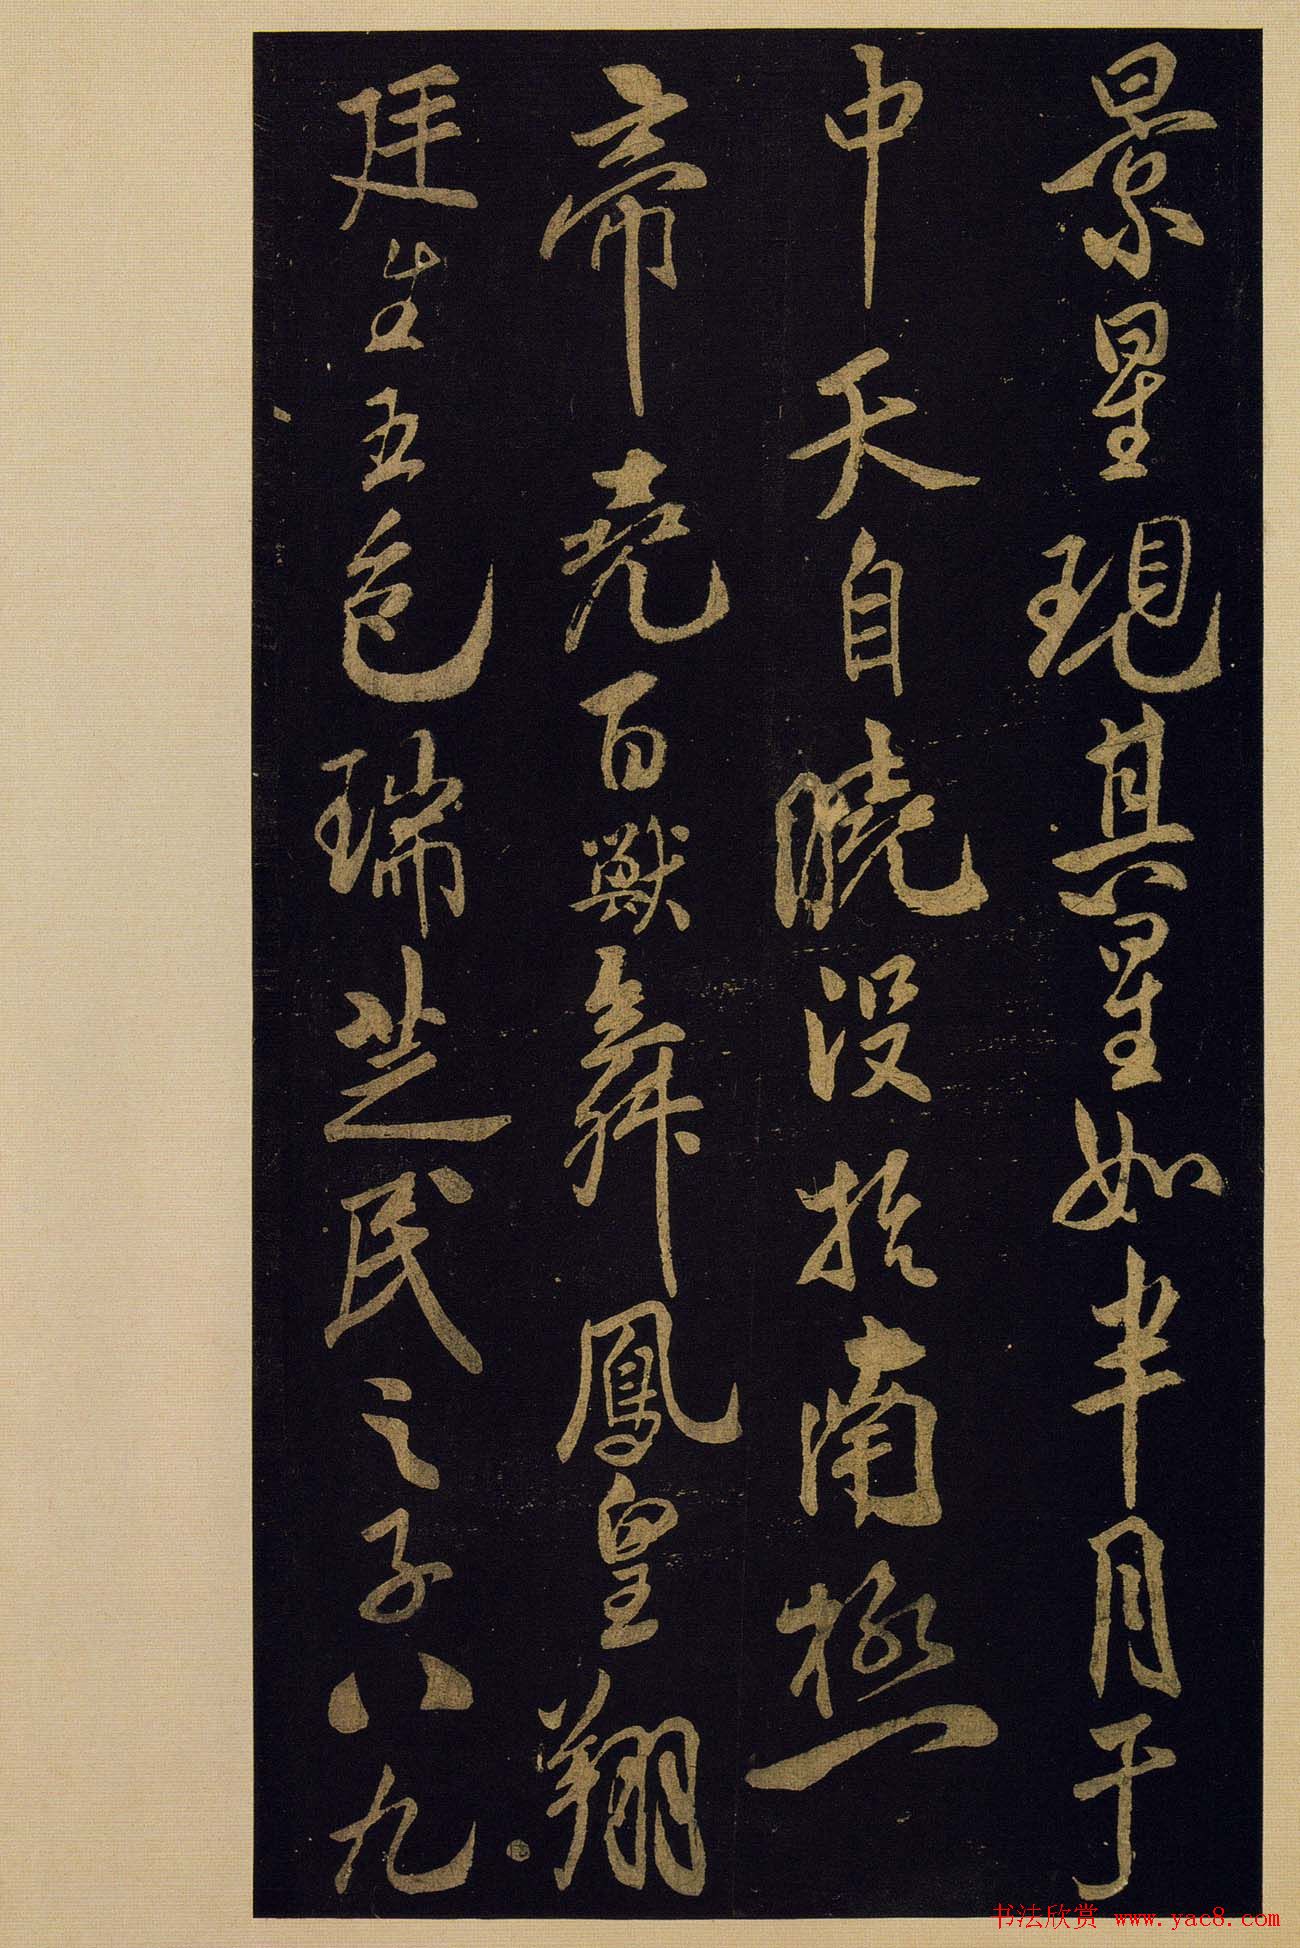 景星現其星如半月于
中天自曉没於南極
帝堯百獸舞鳳皇翔
廷生五色瑞芝民之子八九
书法欣赏 www.yac8.com